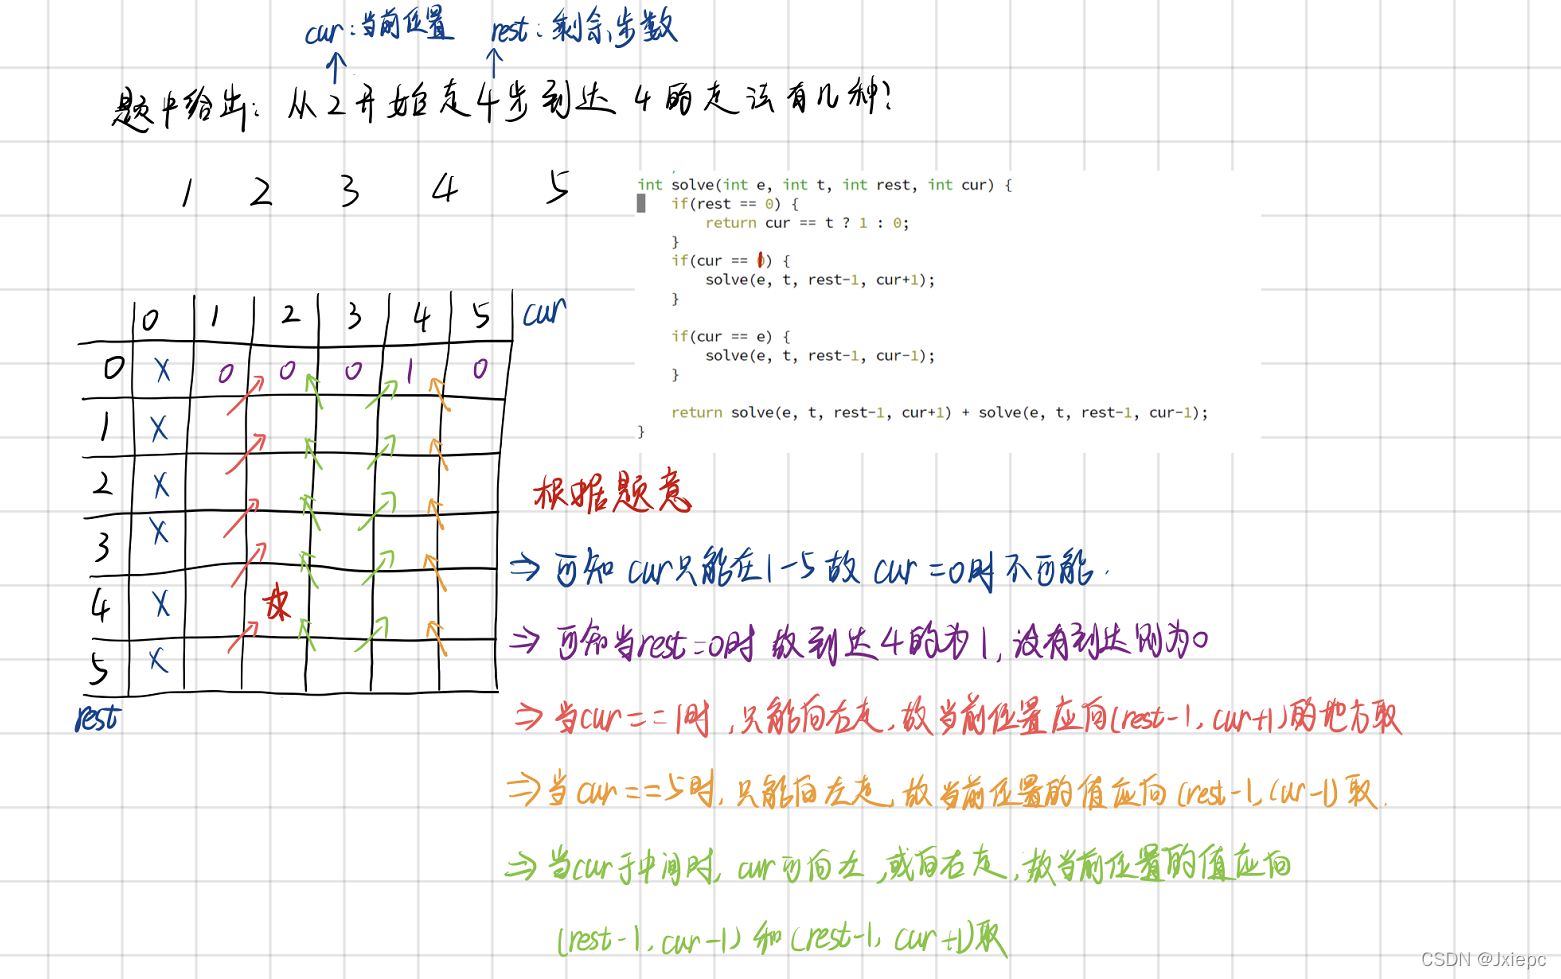 cur:当前位置 rest:剩余步数
题中给出: 从2开始走4步到达 4的走法有几种?
1 2 3 4 5
int solve(int e, int t, int rest, int cur) {
if(rest == 0) {
return cur == t ? 1 : 0;
}
if(cur == 1) {
solve(e, t, rest-1, cur+1);
}
if(cur == e) {
solve(e, t, rest-1, cur-1);
}
return solve(e, t, rest-1, cur+1) + solve(e, t, rest-1, cur-1);
}
0 1 2 3 4 5 cur
0 X 0 0 0 1 0
1 X
2 X
3 X
4 X
5 X
rest
根据题意
⇒ 可知 cur只能在1-5 故 cur =0时不可能.
⇒ 可知当rest=0时 故到达4的为1, 没有到达则为0
⇒ 当cur==1时,只能向右走,故当前位置应向(rest-1, cur+1)的地方取
⇒ 当cur==5时,只能向左走,故当前位置的值应向(rest-1, cur-1)取.
⇒ 当cur于中间时, cur可向左,或向右走,故当前位置的值应向
(rest-1, cur-1) 和 (rest-1, cur+1)取
CSDN @Jxiepc